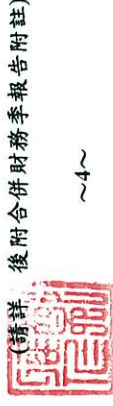 (請詳 後附合併財務季報告附註)
~4~